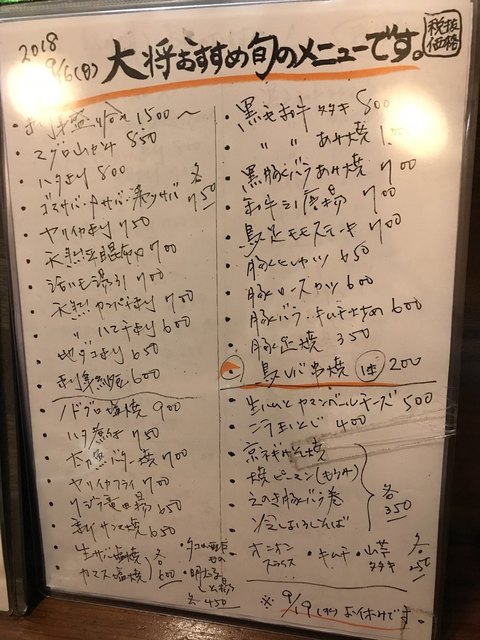 2018
9/16(日) 大将おすすめ旬のメニューです。
税抜価格
・刺身盛り合わせ 1500〜
・マグロ山かけ 850
・ハタ刺 800
・ゴマサバ・〆サバ・炙りサバ 各750
・ヤリイカ刺 750
・天然平目昆布〆 700
・活〆 湯引 700
・天然カンパチ刺 700
・〃 ハマチ刺 600
・地ダコ刺 650
・刺身 600
ノドグロ塩焼 900
・ハタ煮付 750
・太刀魚バター焼 700
・ヤリイカフライ 700
・クジラ竜田揚 650
・新サンマ焼 650
・生サバ塩焼
・カマス塩焼 各600
・タコ
・明太
各450
・黒毛和牛タタキ 800
・〃 〃 あみ焼
・黒豚バラあみ焼 700
・和牛 唐揚 700
・鳥足モモステーキ 700
・豚ヒレカツ 650
・豚ロースカツ 600
・豚バラ・キムチ炒め 600
・豚足焼 350
・鳥レバ串焼 1本 200
・生ハムとカマンベールチーズ 500
・ニラ玉とじ 400
・京ネギ 焼
・焼ピーマン
・えのき豚バラ巻
・冷しおろしそば
各350
・オニオンスライス ・キムチ ・山芋タタキ 各250
※ 9/19(水)お休みです。